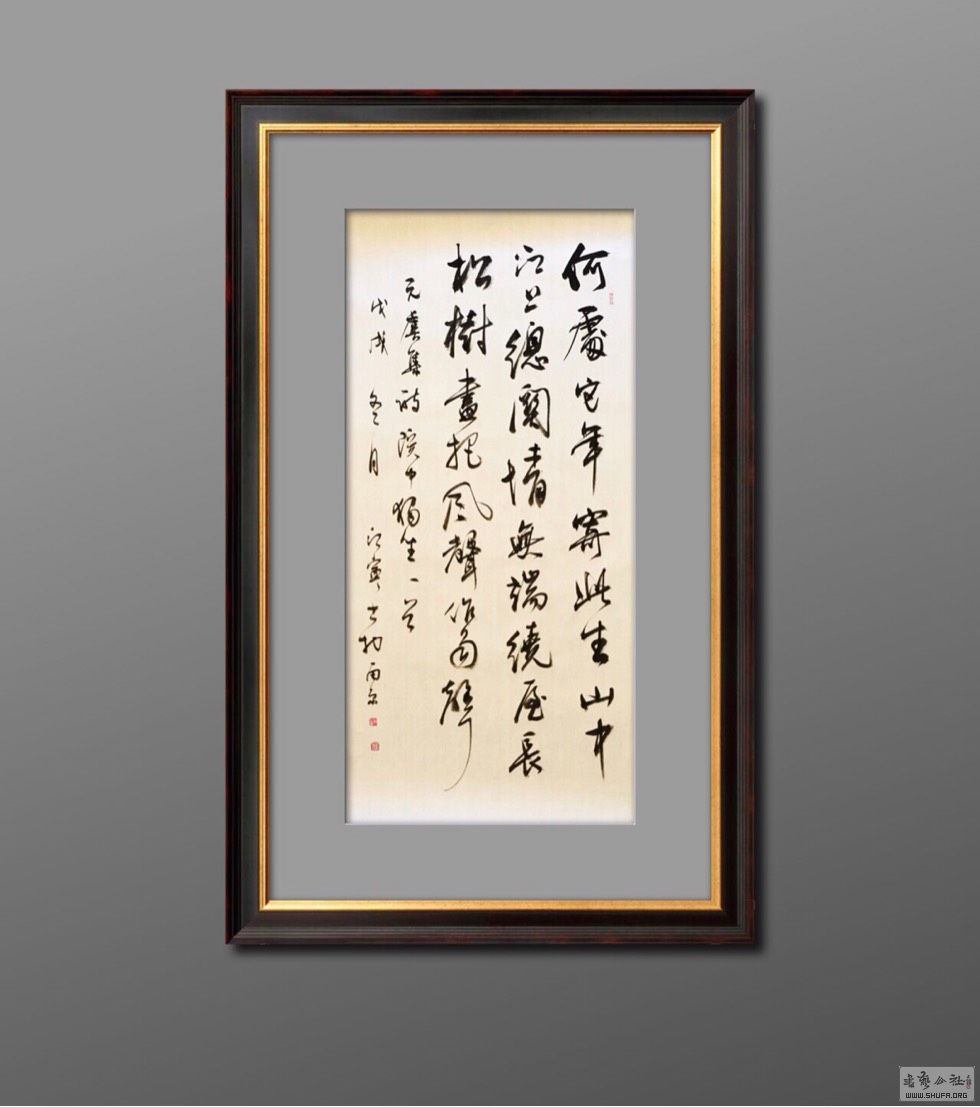 何處它年寄此生山中
江上總關情無端繞屋長
松樹盡把風聲作雨聲
元虞集詩院中獨坐一首
戊戌冬月江寧
書藝公社
WWW.SHUFA.ORG